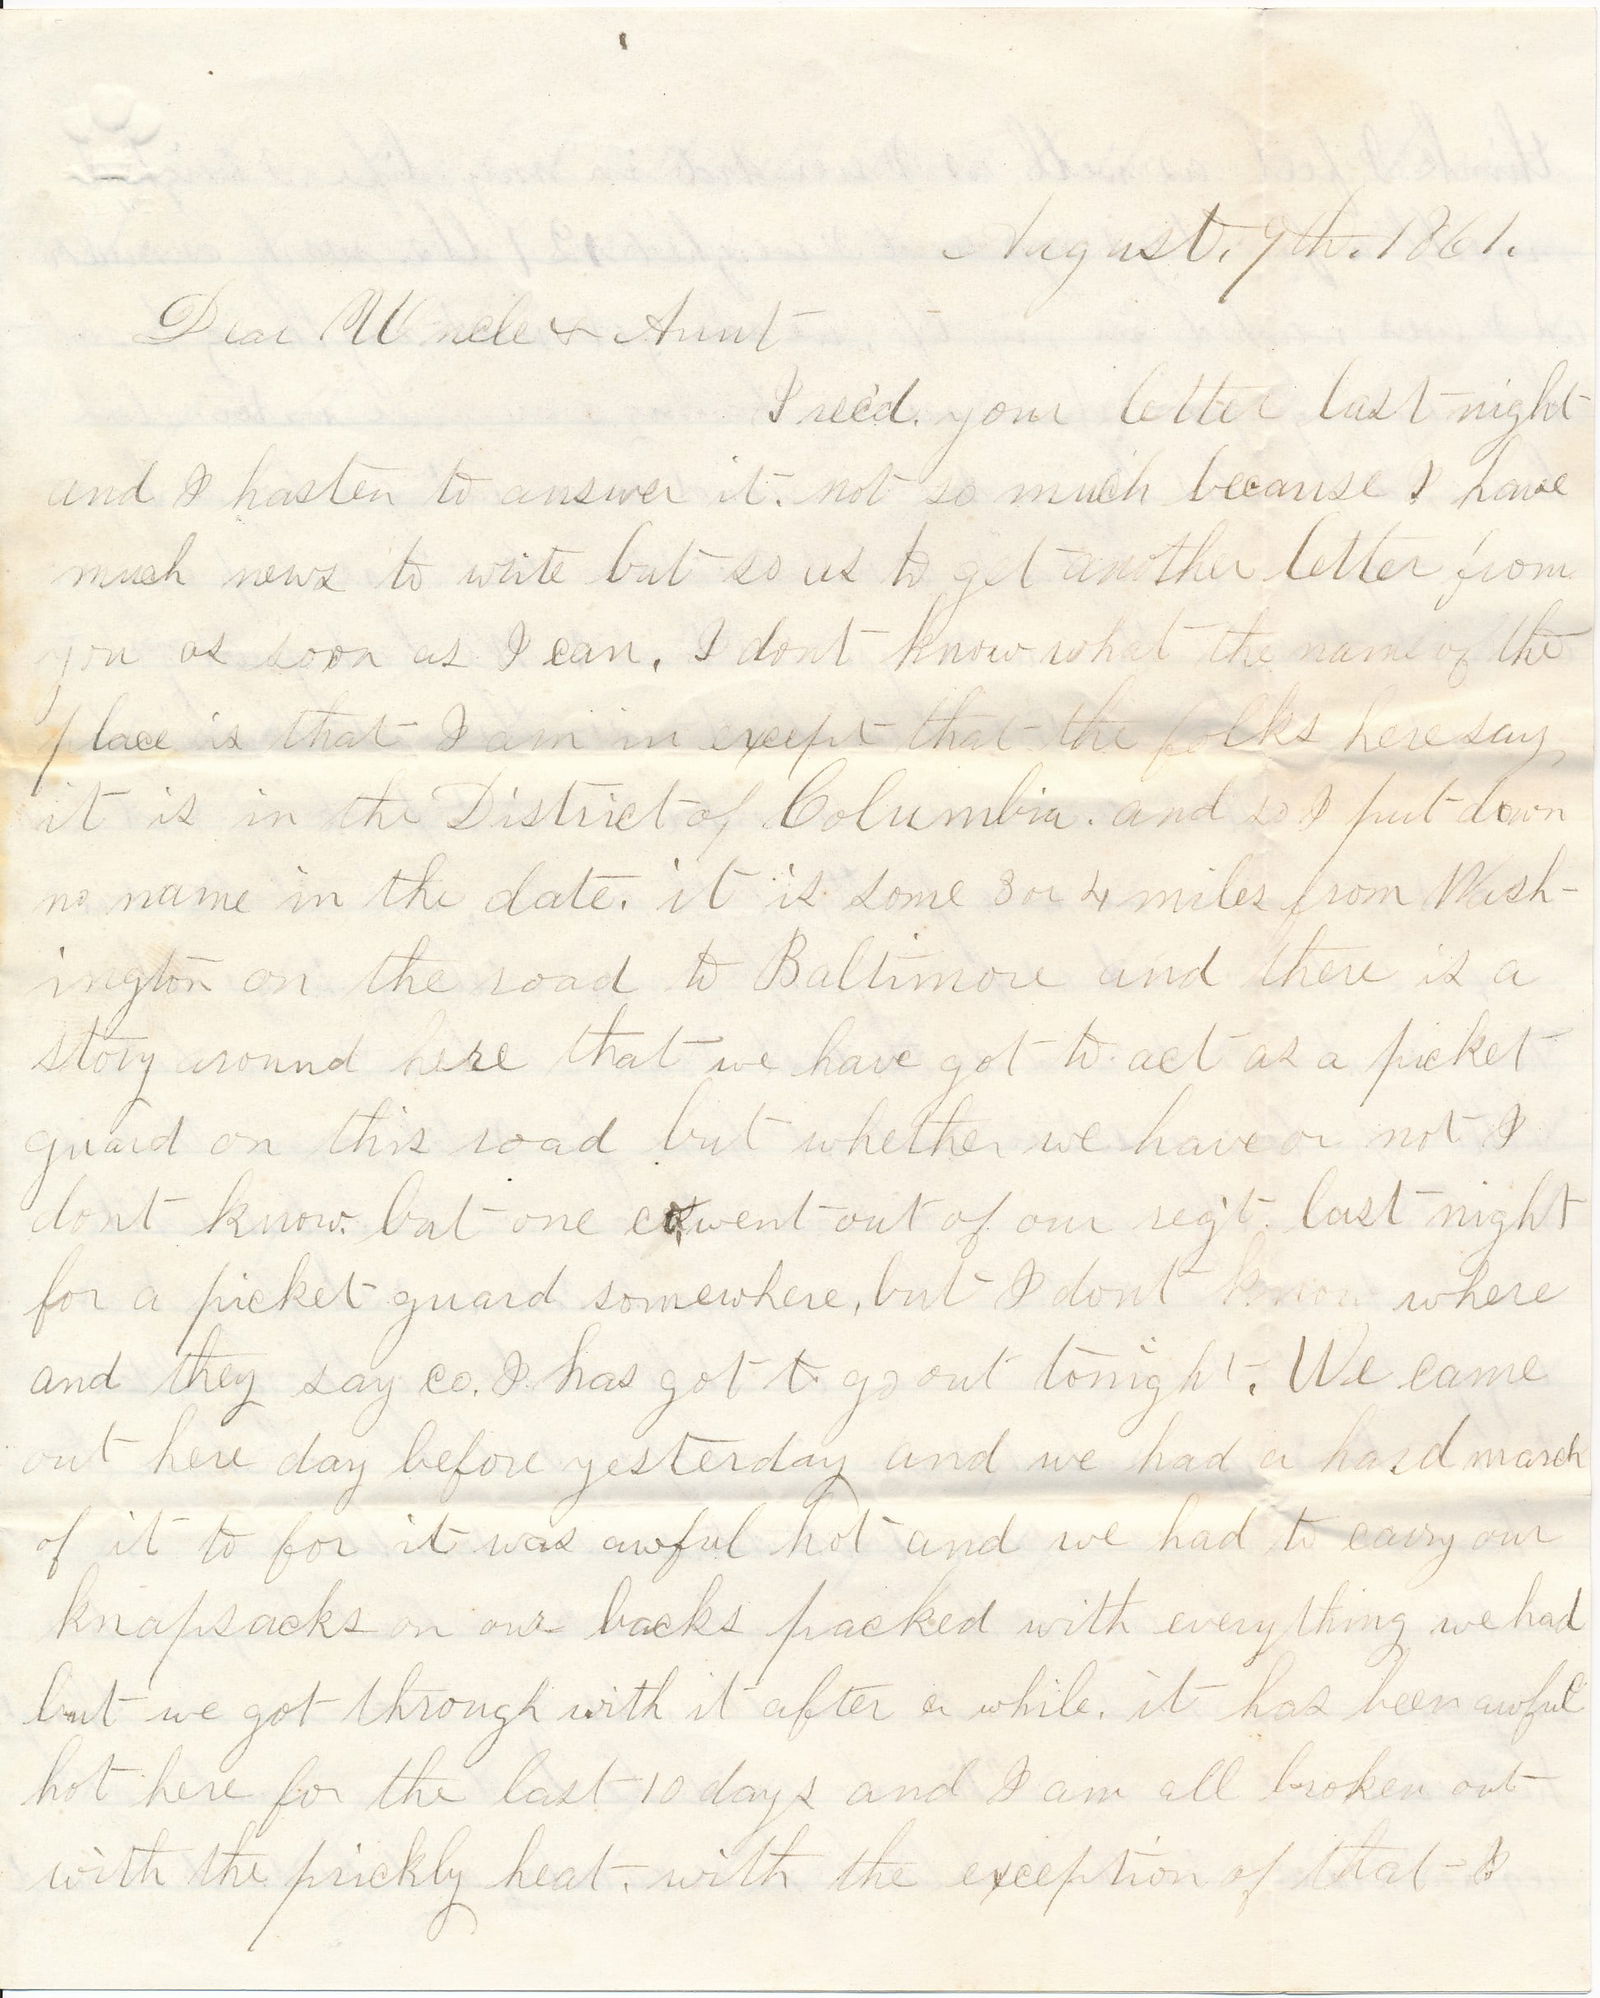 August. 9th. 1861.
Dear Uncle & Aunt
I rec'd. your letter last night
and I hasten to answer it. not so much because I have
much news to write but so as to get another letter from
you as soon as I can. I dont know what the name of the
place is that I am in except that the folks here say
it is in the District of Columbia. and so I put down
no name in the date. it is some 3 or 4 miles from Wash-
ington on the road to Baltimore and there is a
story around here that we have got to act as a picket
guard on this road but whether we have or not I
dont know. but one co. went out of our reg't. last night
for a picket guard somewhere, but I dont know where
and they say co. I has got to go out tonight. We came
out here day before yesterday and we had a hard march
of it to for it was awful hot and we had to carry our
knapsacks on our backs packed with everything we had
but we got through with it after a while. it has been awful
hot here for the last 10 days and I am all broken out
with the prickly heat. with the exception of that I